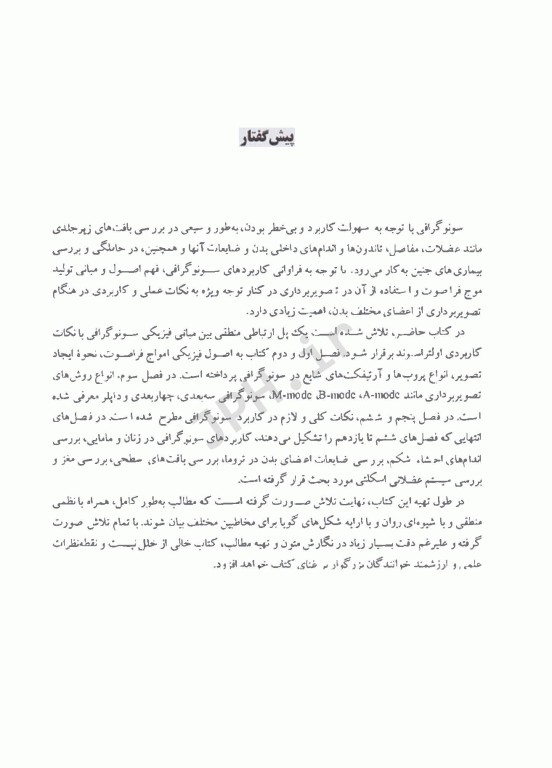 پیش‌گفتار
سونوگرافی با توجه به سهولت کاربرد و بی‌خطر بودن، به‌طور وسیعی در بررسی بافت‌های زیرجلدی
مانند عضلات، مفاصل، تاندون‌ها و اندام‌های داخلی بدن و ضایعات آنها و همچنین، در حاملگی و بررسی
بیماری‌های جنین به‌کار می‌رود. با توجه به فراوانی کاربردهای سونوگرافی، فهم اصول و مبانی تولید
موج فراصوت و استفاده از آن در تصویربرداری در کنار توجه ویژه به نکات عملی و کاربردی در هنگام
تصویربرداری از اعضای مختلف بدن، اهمیت زیادی دارد.
در کتاب حاضر، تلاش شده است یک پل ارتباطی منطقی بین مبانی فیزیکی سونوگرافی با نکات
کاربردی اولتراسوند برقرار شود. فصل اول و دوم کتاب به اصول فیزیکی امواج فراصوت، نحوهٔ ایجاد
تصویر، انواع پروب‌ها و آرتیفکت‌های شایع در سونوگرافی پرداخته است. در فصل سوم، انواع روش‌های
تصویربرداری مانند A-mode، B-mode، M-mode، سونوگرافی سه‌بعدی، چهاربعدی و داپلر معرفی شده
است. در فصل پنجم و ششم، نکات کلی و لازم در کاربرد سونوگرافی مطرح شده است. در فصل‌های
انتهایی که فصل‌های ششم تا یازدهم را تشکیل می‌دهند، کاربردهای سونوگرافی در زنان و مامایی، بررسی
اندام‌های احشاء شکم، بررسی ضایعات اعضای بدن در تروما، بررسی بافت‌های سطحی، بررسی مغز و
بررسی سیستم عضلانی اسکلتی مورد بحث قرار گرفته است.
در طول تهیه این کتاب، نهایت تلاش صورت گرفته است که مطالب به‌طور کامل، همراه با نظمی
منطقی و با شیوه‌ای روان و با ارایه شکل‌های گویا برای مخاطبین مختلف بیان شوند. با تمام تلاش صورت
گرفته و علیرغم دقت بسیار زیاد در نگارش متون و تهیه مطالب، کتاب خالی از خلل نیست و نقطه‌نظرات
علمی و ارزشمند خوانندگان بزرگوار بر غنای کتاب خواهد افزود.
JPH.ir